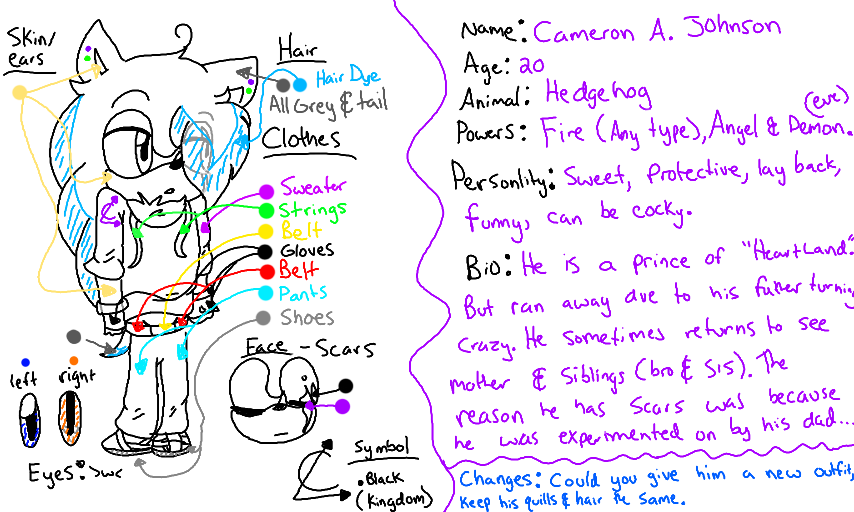 Skin/
ears
Hair
Hair Dye
All Grey & tail
Clothes
Sweater
Strings
Belt
Gloves
Belt
Pants
Shoes
left
right
Eyes: >w<
Face - Scars
Symbol
. Black
(Kingdom)
Name: Cameron A. Johnson
Age: 20
Animal: Hedgehog
(eye)
Powers: Fire (Any type), Angel & Demon.
Personlity: Sweet, Protective, lay back,
funny, can be cocky.
Bio: He is a prince of "HeartLand".
But ran away due to his father turning
crazy. He sometimes returns to see
mother & siblings (bro & sis). The
reason he has scars was because
he was experimented on by his dad...
Changes: Could you give him a new outfit,
keep his quills & hair the same.